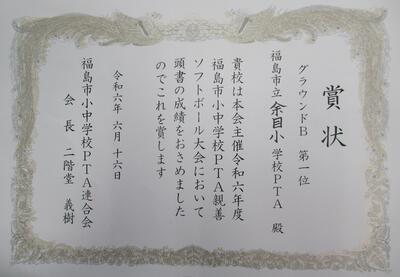 賞状
グラウンドB 第一位
福島市立 余目小 学校PTA 殿
貴校は本会主催令和六年度
福島市小中学校PTA親善
ソフトボール大会において
頭書の成績をおさめました
のでこれを賞します
令和六年 六月 十六日
福島市小中学校PTA連合会
会長 二階堂 義樹